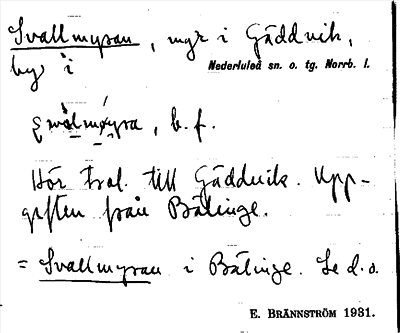 Svallmyran, myr i Gäddvik,
by i Nederluleå sn. o. tg. Norrb. l.
b. f.
Hör trol. till Gäddvik. Upp-
giften från Bälinge.
= Svallmyran i Bälinge. Se d. o.
E. BRÄNNSTRÖM 1931.